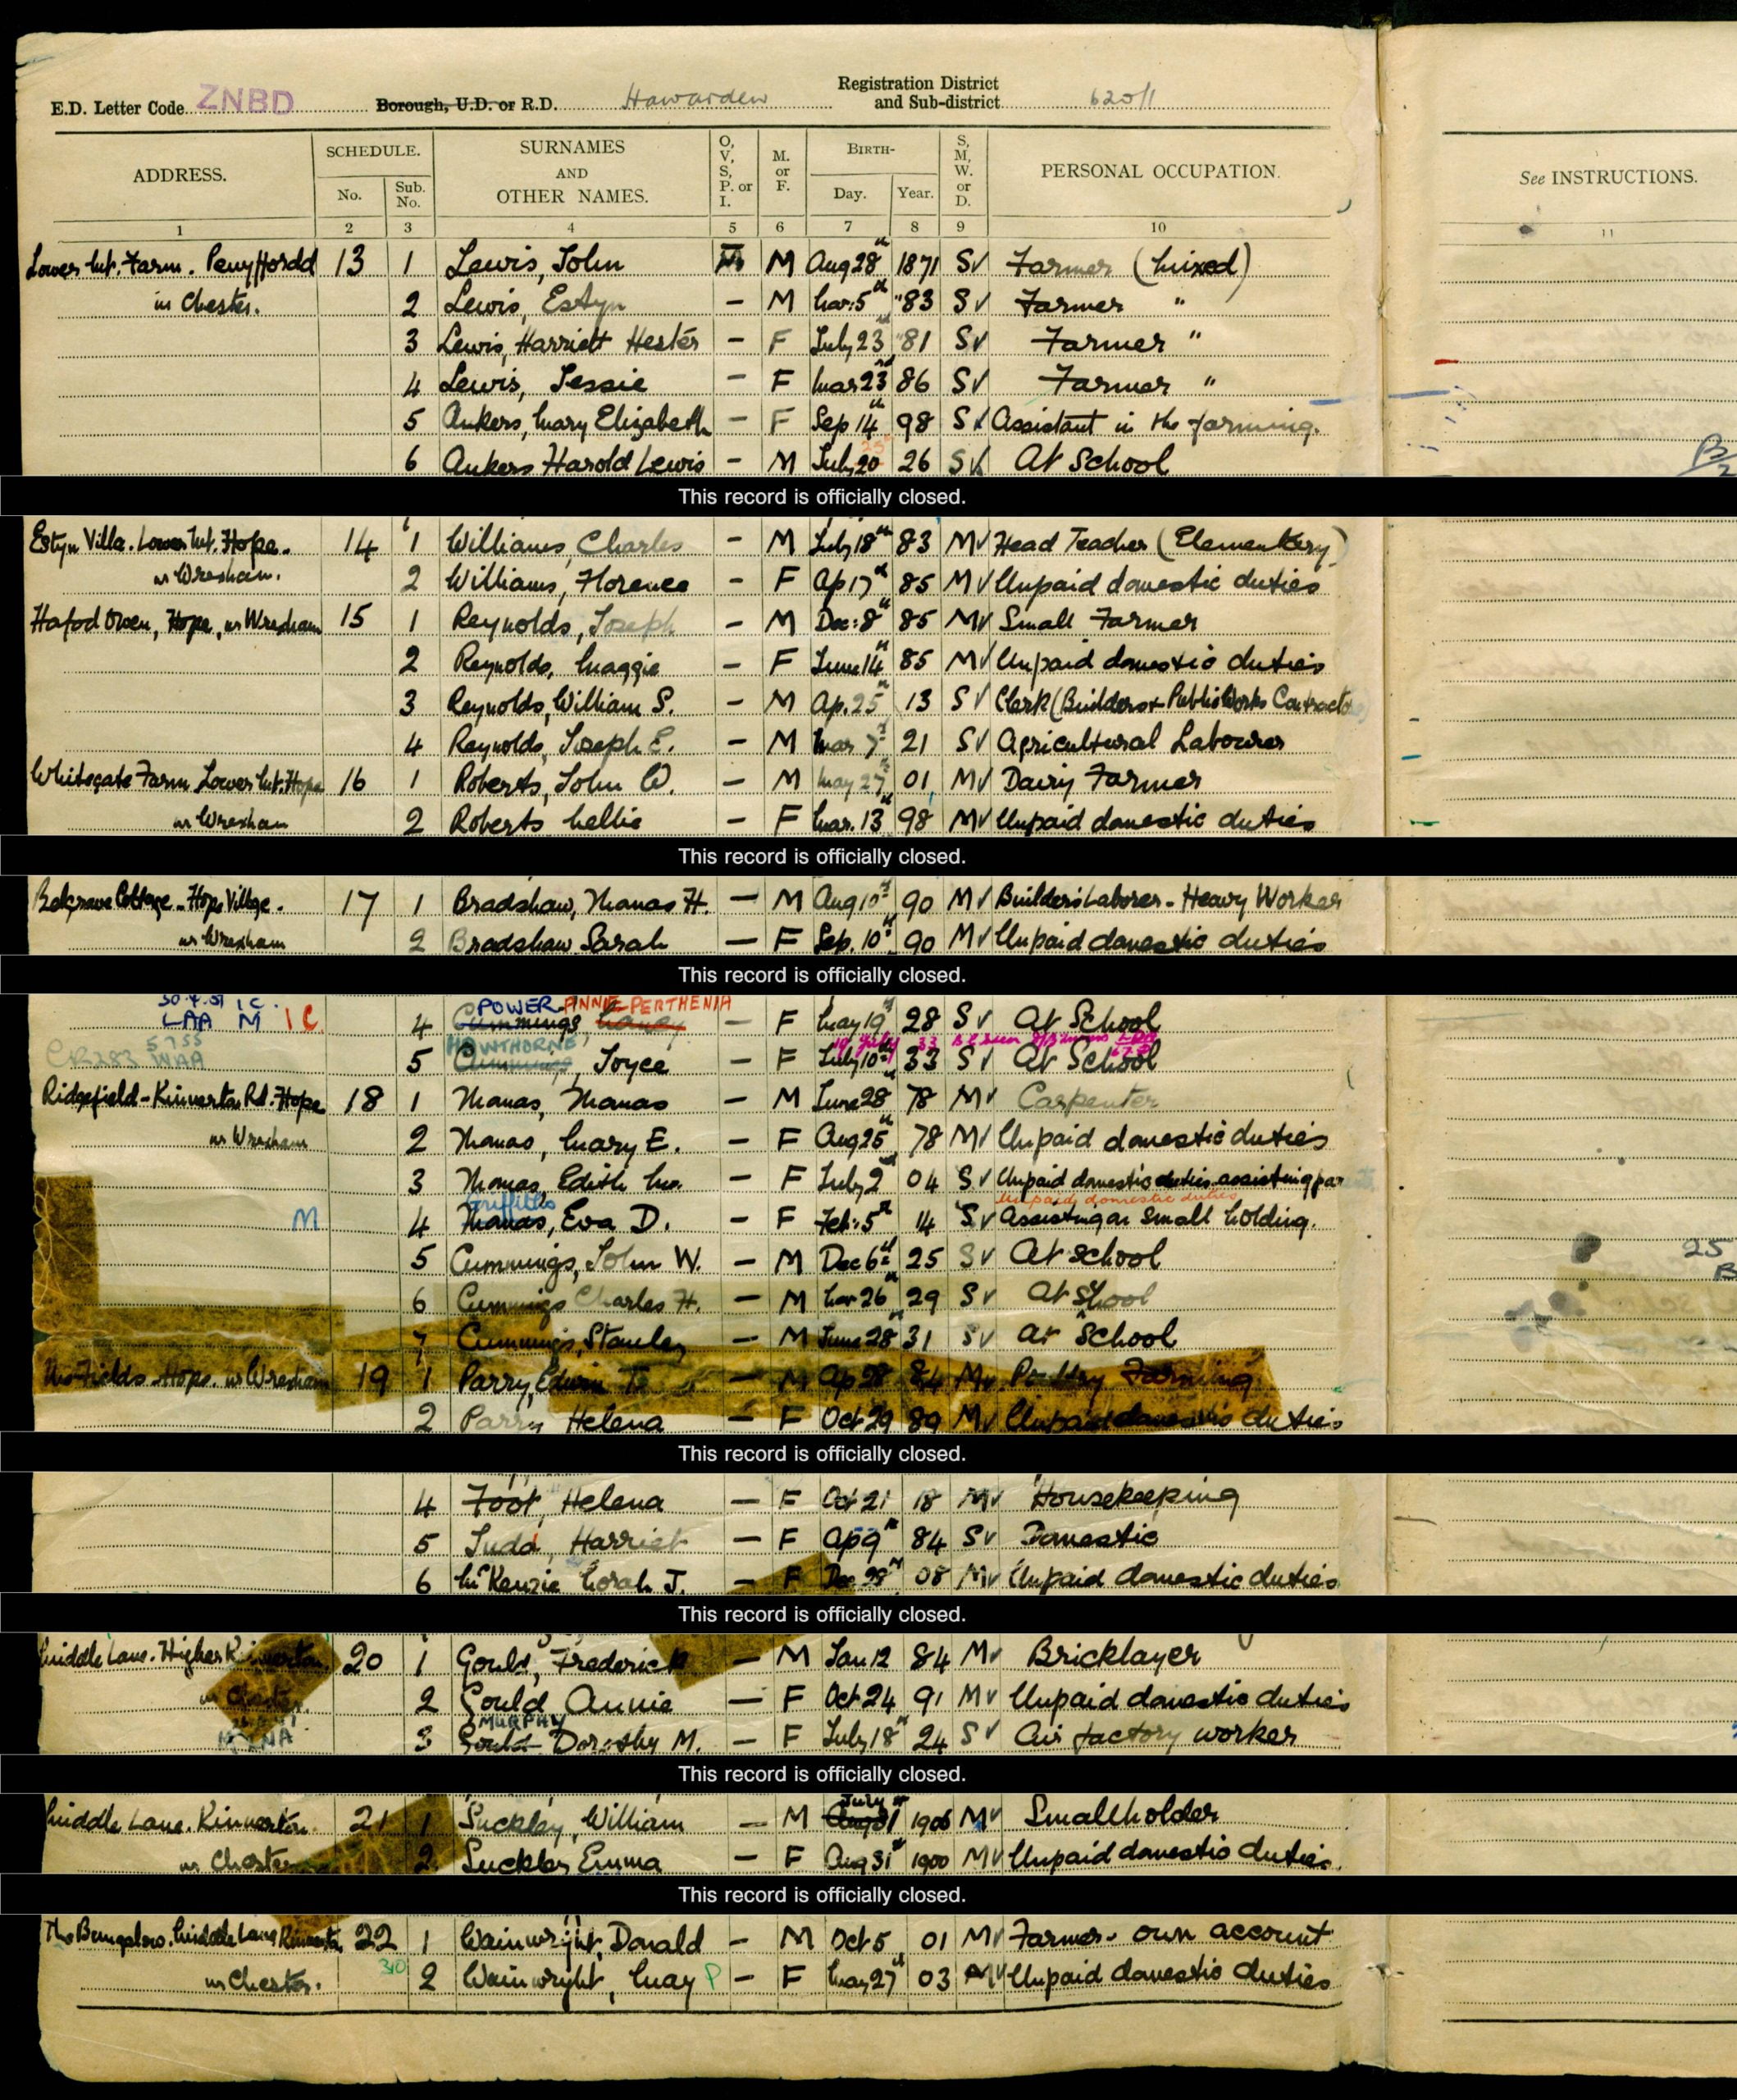 Registration District
E.D. Letter Code ZNBD Borough, U.D. or R.D. Hawarden and Sub-district 620/1
ADDRESS. SCHEDULE. No. Sub. No. SURNAMES AND OTHER NAMES. O, V, S, P. or I. M. or F. BIRTH- Day. Year. S, M, W. or D. PERSONAL OCCUPATION. See INSTRUCTIONS.
1 2 3 4 5 6 7 8 9 10 11
Lower Mt. Farm. Penyffordd 13 1 Lewis, John M Aug 28th 1871 S Farmer (Mixed)
nr Chester. 2 Lewis, Estyn - M Mar: 5th "83 S Farmer "
3 Lewis, Harriett Hester - F July 23 "81 S Farmer "
4 Lewis, Jessie - F Mar 23rd 86 S Farmer "
5 Ankers, Mary Elizabeth - F Sep 14th 98 S Assistant in the farming.
6 Ankers Harold Lewis - M July 20 26 S At School
This record is officially closed.
Estyn Villa. Lower Mt. Hope. 14 1 Williams, Charles - M July 18th 83 M Head Teacher (Elementary)
nr Wrexham. 2 Williams, Florence - F Ap 17th 85 M Unpaid domestic duties
Hafod Owen, Hope, nr Wrexham 15 1 Reynolds, Joseph - M Dec: 8th 85 M Small Farmer
2 Reynolds, Maggie - F June 14th 85 M Unpaid domestic duties
3 Reynolds, William S. - M Ap. 25th 13 S Clerk (Builders & Public Works Contractors)
4 Reynolds, Joseph E. - M Mar 7th 21 S Agricultural Labourer
Whitegate Farm Lower Mt. Hope 16 1 Roberts, John W. - M May 27th 01 M Dairy Farmer
nr Wrexham 2 Roberts Nellie - F Mar. 13th 98 M Unpaid domestic duties
This record is officially closed.
Belgrave Cottage - Hope Village. 17 1 Bradshaw, Thomas H. - M Aug 10th 90 M Builders Laborer - Heavy Worker
nr Wrexham 2 Bradshaw Sarah - F Sep. 10th 90 M Unpaid domestic duties
This record is officially closed.
POWER ANNIE PERTHENIA
LAA M IC 4 Cummings - F May 19th 28 S At School
HAWTHORNE
CR283 WAA 5 Cummings, Joyce - F July 10th 33 S At School
Ridgefield - Kinnerton Rd. Hope 18 1 Thomas, Thomas - M June 28th 78 M Carpenter
nr Wrexham 2 Thomas, Mary E. - F Aug 25th 78 M Unpaid domestic duties
3 Thomas, Edith M. - F July 2nd 04 S Unpaid domestic duties assisting
Griffiths Unpaid domestic duties
M 4 Thomas, Eva D. - F Feb: 5th 14 S Assisting on small holding.
5 Cummings, John W. - M Dec 6th 25 S At school
6 Cummings Charles H. - M Mar 26th 29 S At School
7 Cummings, Stanley - M June 28th 31 S At School
The Fields. Hope. nr Wrexham 19 1 Parry, Edwin T. - M Ap 28 84 M Poultry Farming
2 Parry Helena - F Oct 29 89 M Unpaid domestic duties
This record is officially closed.
4 Foot, Helena - F Oct 21 18 M Housekeeping
5 Judd, Harriet - F Ap 9th 84 S Domestic
6 McKenzie Norah J. - F Dec 29th 08 M Unpaid domestic duties
This record is officially closed.
Middle Lane. Higher Kinnerton 20 1 Gould, Frederick - M Jan 12 84 M Bricklayer
nr Chester. 2 Gould Annie - F Oct 24 91 M Unpaid domestic duties
MURPHY
3 Gould Dorothy M. - F July 18th 24 S Air factory worker
This record is officially closed.
July
Middle Lane. Kinnerton. 21 1 Suckley, William - M Aug 31 1906 M Smallholder
nr Chester 2 Suckley Emma - F Aug 31st 1900 M Unpaid domestic duties.
This record is officially closed.
The Bungalow. Middle Lane Kinnerton 22 1 Wainwright, Donald - M Oct 5 01 M Farmer - own account
nr Chester. 310 2 Wainwright, May P - F May 27th 03 M Unpaid domestic duties